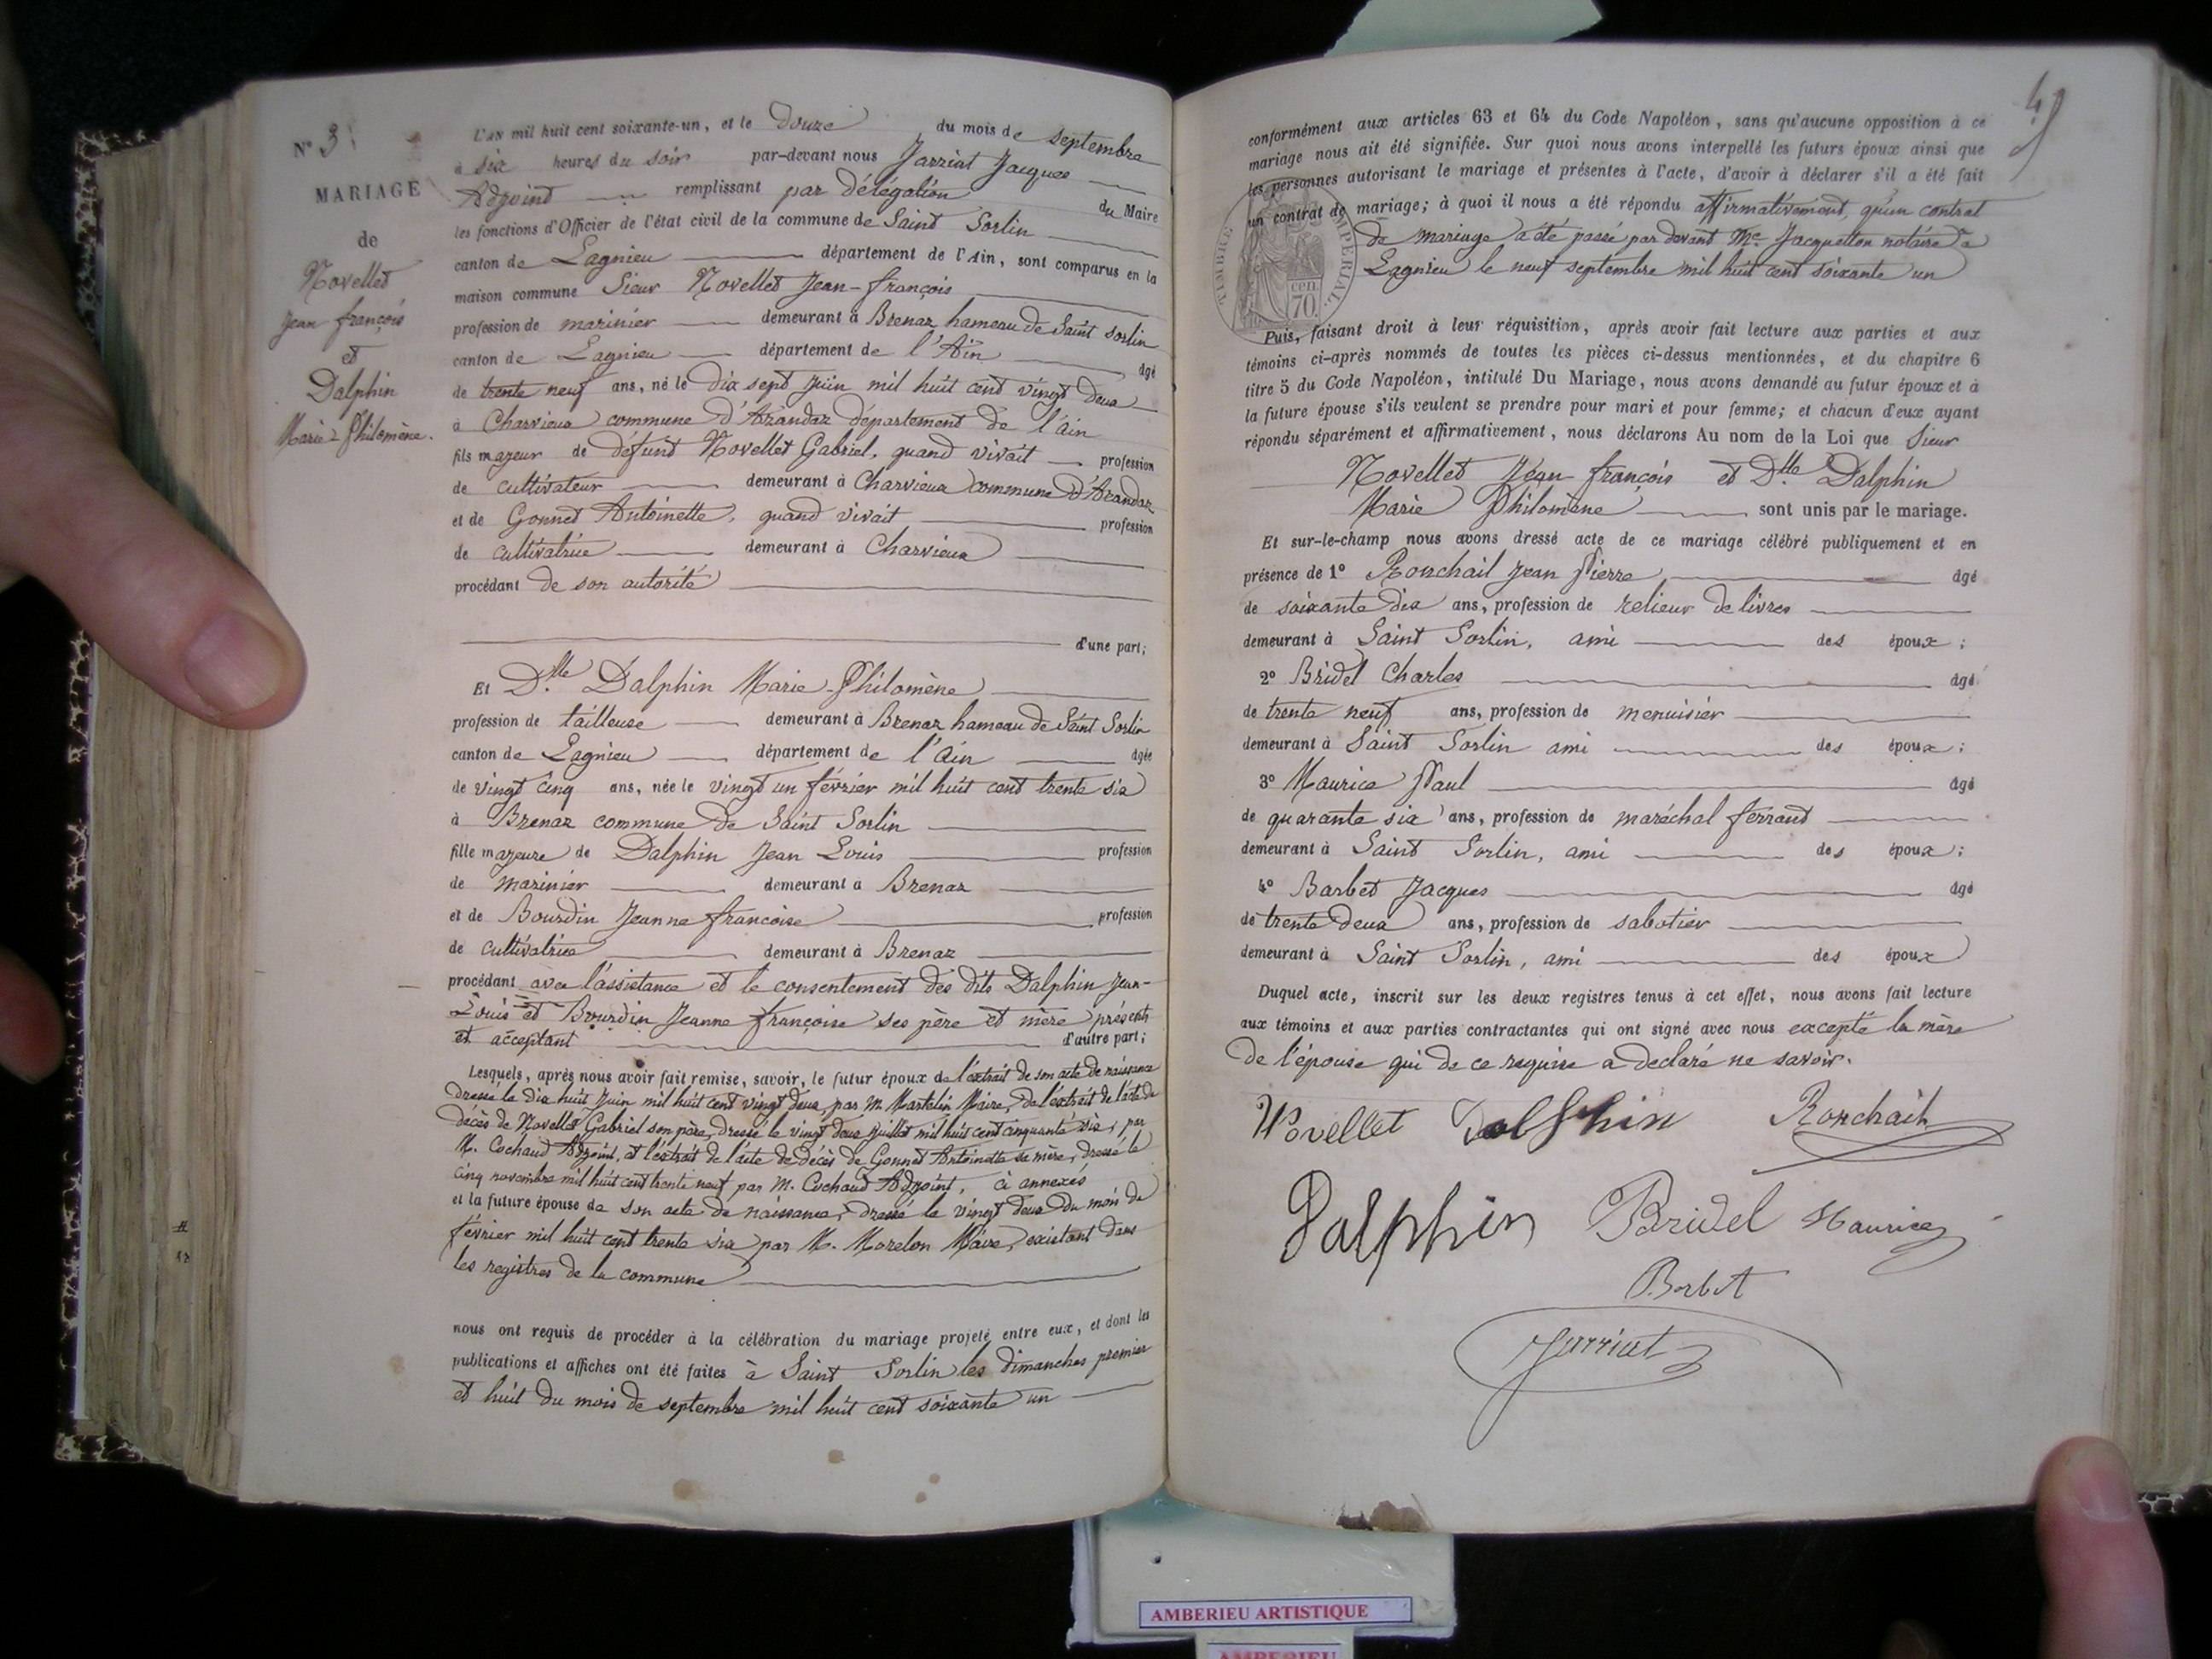 N° 3
MARIAGE
de
Novellet
Jean françois
et
Dalphin
Marie-Philomène.
L'AN mil huit cent soixante-un, et le douze du mois de septembre
à six heures du soir par-devant nous Jarriat Jacques
Adjoint remplissant par délégation du Maire
les fonctions d'Officier de l'état civil de la commune de Saint Sorlin
canton de Lagnieu département de l'Ain, sont comparus en la
maison commune Sieur Novellet Jean-françois
profession de marinier demeurant à Brenaz hameau de Saint Sorlin
canton de Lagnieu département de l'Ain âgé
de trente neuf ans, né le dix sept juin mil huit cent vingt deux
à Charvieux commune d'Arandaz département de l'ain
fils majeur de défunt Novellet Gabriel, quand vivait profession
de cultivateur demeurant à Charvieux commune d'Arandaz
et de Gonnet Antoinette, quand vivait profession
de cultivatrice demeurant à Charvieux
procédant de son autorité
d'une part;
Et Dlle Dalphin Marie-Philomène
profession de tailleuse demeurant à Brenaz hameau de Saint Sorlin
canton de Lagnieu département de l'ain âgée
de vingt cinq ans, née le vingt un février mil huit cent trente six
à Brenaz commune de Saint Sorlin
fille majeure de Dalphin Jean Louis profession
de marinier demeurant à Brenaz
et de Bourdin Jeanne françoise profession
de cultivatrice demeurant à Brenaz
procédant avec l'assistance et le consentement des dits Dalphin Jean-
Louis et Bourdin Jeanne françoise ses père et mère présents
et acceptant d'autre part;
Lesquels, après nous avoir fait remise, savoir, le futur époux de l'extrait de son acte de naissance
dressé le dix huit juin mil huit cent vingt deux, par M. Martelin Maire, de l'extrait de l'acte de
décès de Novellet Gabriel son père, dressé le vingt deux juillet mil huit cent cinquante six, par
M. Cochaud Adjoint, et l'extrait de l'acte de décès de Gonnet Antoinette sa mère, dressé le
cinq novembre mil huit cent trente neuf par M. Cochaud Adjoint, ci annexés
et la future épouse de son acte de naissance, dressé le vingt deux du mois de
février mil huit cent trente six par M. Morelon Maire, existant dans
les registres de la commune
nous ont requis de procéder à la célébration du mariage projeté entre eux, et dont les
publications et affiches ont été faites à Saint Sorlin les dimanches premier
et huit du mois de septembre mil huit cent soixante un
49
conformément aux articles 63 et 64 du Code Napoléon, sans qu'aucune opposition à ce
mariage nous ait été signifiée. Sur quoi nous avons interpellé les futurs époux ainsi que
les personnes autorisant le mariage et présentes à l'acte, d'avoir à déclarer s'il a été fait
un contrat de mariage; à quoi il nous a été répondu affirmativement, qu'un contrat
de mariage a été passé par devant Me Jacquetton notaire à
Lagnieu le neuf septembre mil huit cent soixante un
TIMBRE IMPERIAL.
cen.
70.
Puis, faisant droit à leur réquisition, après avoir fait lecture aux parties et aux
témoins ci-après nommés de toutes les pièces ci-dessus mentionnées, et du chapitre 6
titre 5 du Code Napoléon, intitulé Du Mariage, nous avons demandé au futur époux et à
la future épouse s'ils veulent se prendre pour mari et pour femme; et chacun d'eux ayant
répondu séparément et affirmativement, nous déclarons Au nom de la Loi que Sieur
Novellet Jean françois et Dlle Dalphin
Marie Philomène sont unis par le mariage.
Et sur-le-champ nous avons dressé acte de ce mariage célébré publiquement et en
présence de 1° Ronchail Jean Pierre âgé
de soixante dix ans, profession de relieur de livres
demeurant à Saint Sorlin, ami des époux;
2° Bridel Charles âgé
de trente neuf ans, profession de menuisier
demeurant à Saint Sorlin ami des époux;
3° Maurice Paul âgé
de quarante six ans, profession de maréchal ferrant
demeurant à Saint Sorlin, ami des époux;
4° Barbet Jacques âgé
de trente deux ans, profession de sabotier
demeurant à Saint Sorlin, ami des époux
Duquel acte, inscrit sur les deux registres tenus à cet effet, nous avons fait lecture
aux témoins et aux parties contractantes qui ont signé avec nous excepté la mère
de l'épouse qui de ce requise a déclaré ne savoir.
Novellet Dalphin Ronchail
Dalphin Bridel Maurice
Barbet
Jarriat
AMBERIEU ARTISTIQUE
AMBERIEU